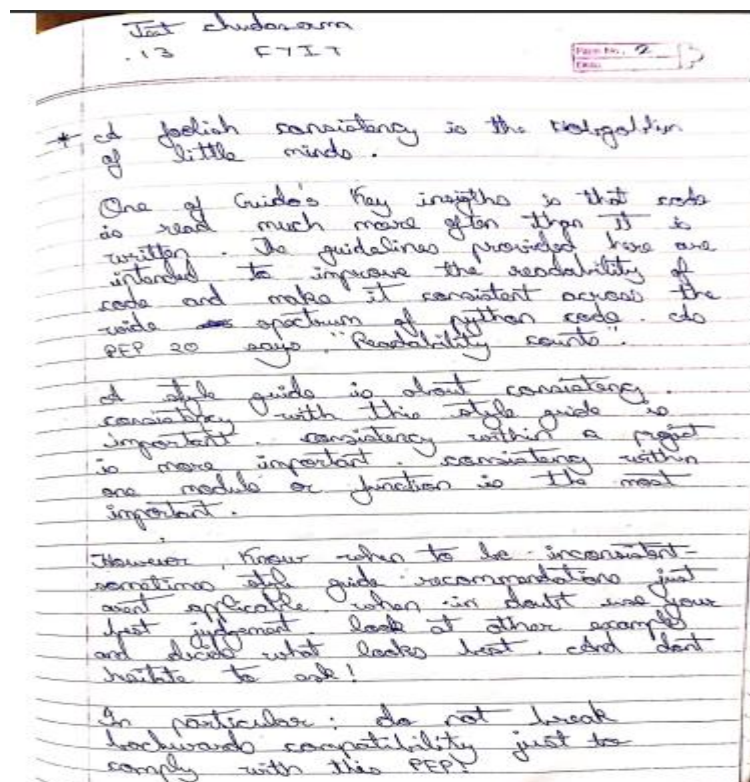 Jeet chudasama
.13 FYIT
Page No. 2
Date
* A foolish consistency is the Hobgoblin
of little minds.
One of Guido's Key insigths is that code
is read much more often than IT is
written. The guidelines provided here are
intended to improve the readability of
code and make it consistent across the
wide spectrum of python code. As
PEP 20 says "Readability counts".
A style guide is about consistency.
consistency with this style guide is
important. consistency within a project
is more important. consistency within
one module or function is the most
important.
However, Know when to be inconsistent-
sometimes style guide recommendations just
arent applicable. when in doubt use your
best judgement. look at other examples
and decide what looks best. And dont
hesitate to ask!
In particular: do not break
backwards compatibility just to
comply with this PEP!